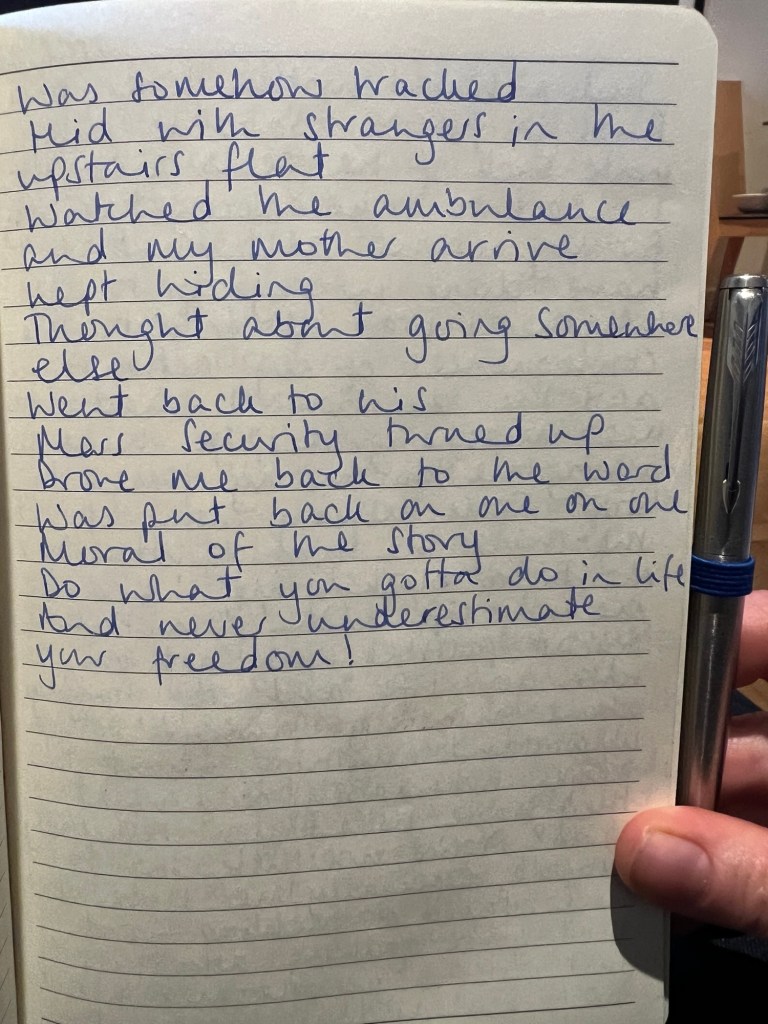 Was somehow tracked
Hid with strangers in the
upstairs flat
Watched the ambulance
and my mother arrive
kept hiding
Thought about going somewhere
else
Went back to his
Mass security turned up
Drove me back to the ward
Was put back on one on one
Moral of the story
Do what you gotta do in life
And never underestimate
your freedom!